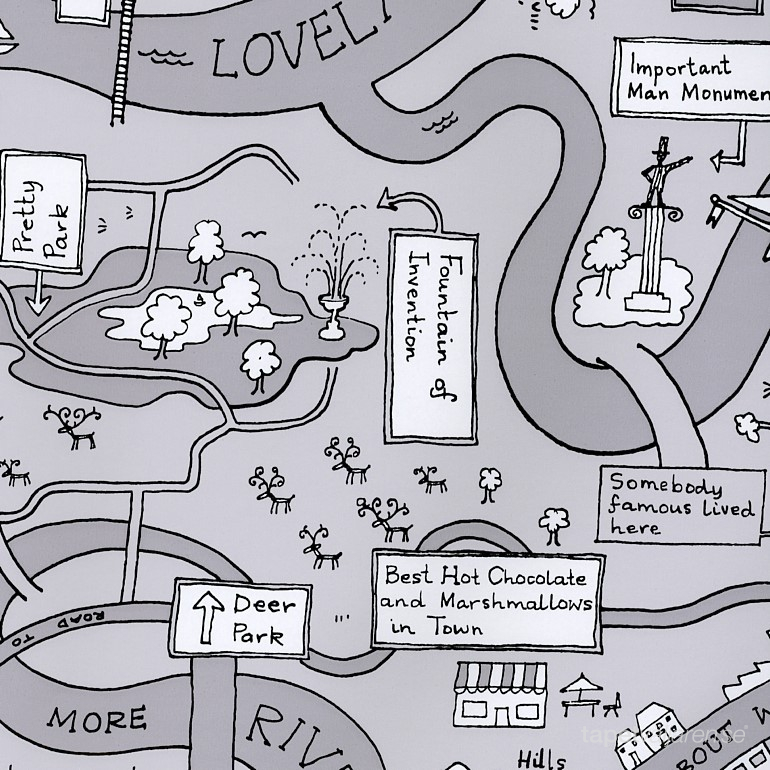 LOVELY
Important
Man Monumen
Pretty
Park
Fountain of
Invention
Somebody
famous lived
here
Best Hot Chocolate
and Marshmallows
in Town
Deer
Park
ROAD TO
MORE
RIV
Hills
BOUT